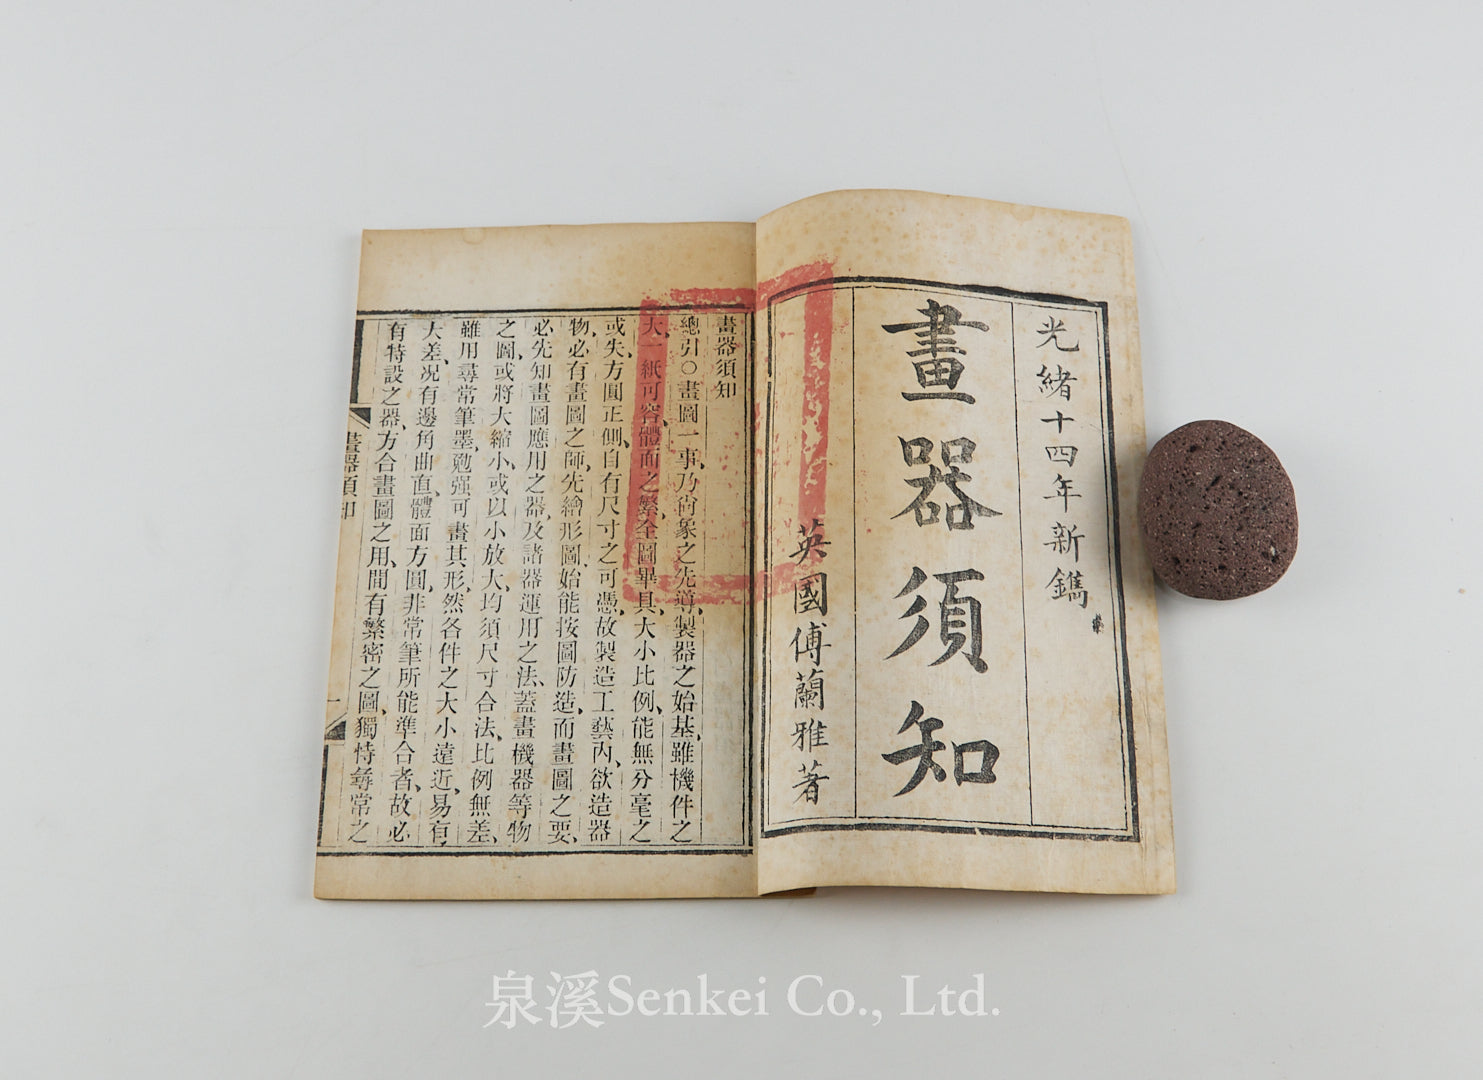 光緒十四年新鐫
畫器須知
英國傅蘭雅著
畫器須知
總引○畫圖一事、乃尙象之先導、製器之始基、雖機件之
大、一紙可容、體面之繁、全圖畢具、大小比例、能無分毫之
或失、方圓正側、自有尺寸之可憑、故製造工藝內、欲造器
物、必有畫圖之師、先繪形圖、始能按圖防造、而畫圖之要、
必先知畫圖應用之器、及諸器運用之法、蓋畫機器等物
之圖、或將大縮小、或以小放大、均須尺寸合法、比例無差、
雖用尋常筆墨、勉强可畫其形、然各件之大小遠近、易有
大差、况有邊角曲直、體面方圓、非常筆所能準合者、故必
有特設之器、方合畫圖之用、間有繁密之圖、獨恃尋常之
畫器須知
一
泉溪Senkei Co., Ltd.